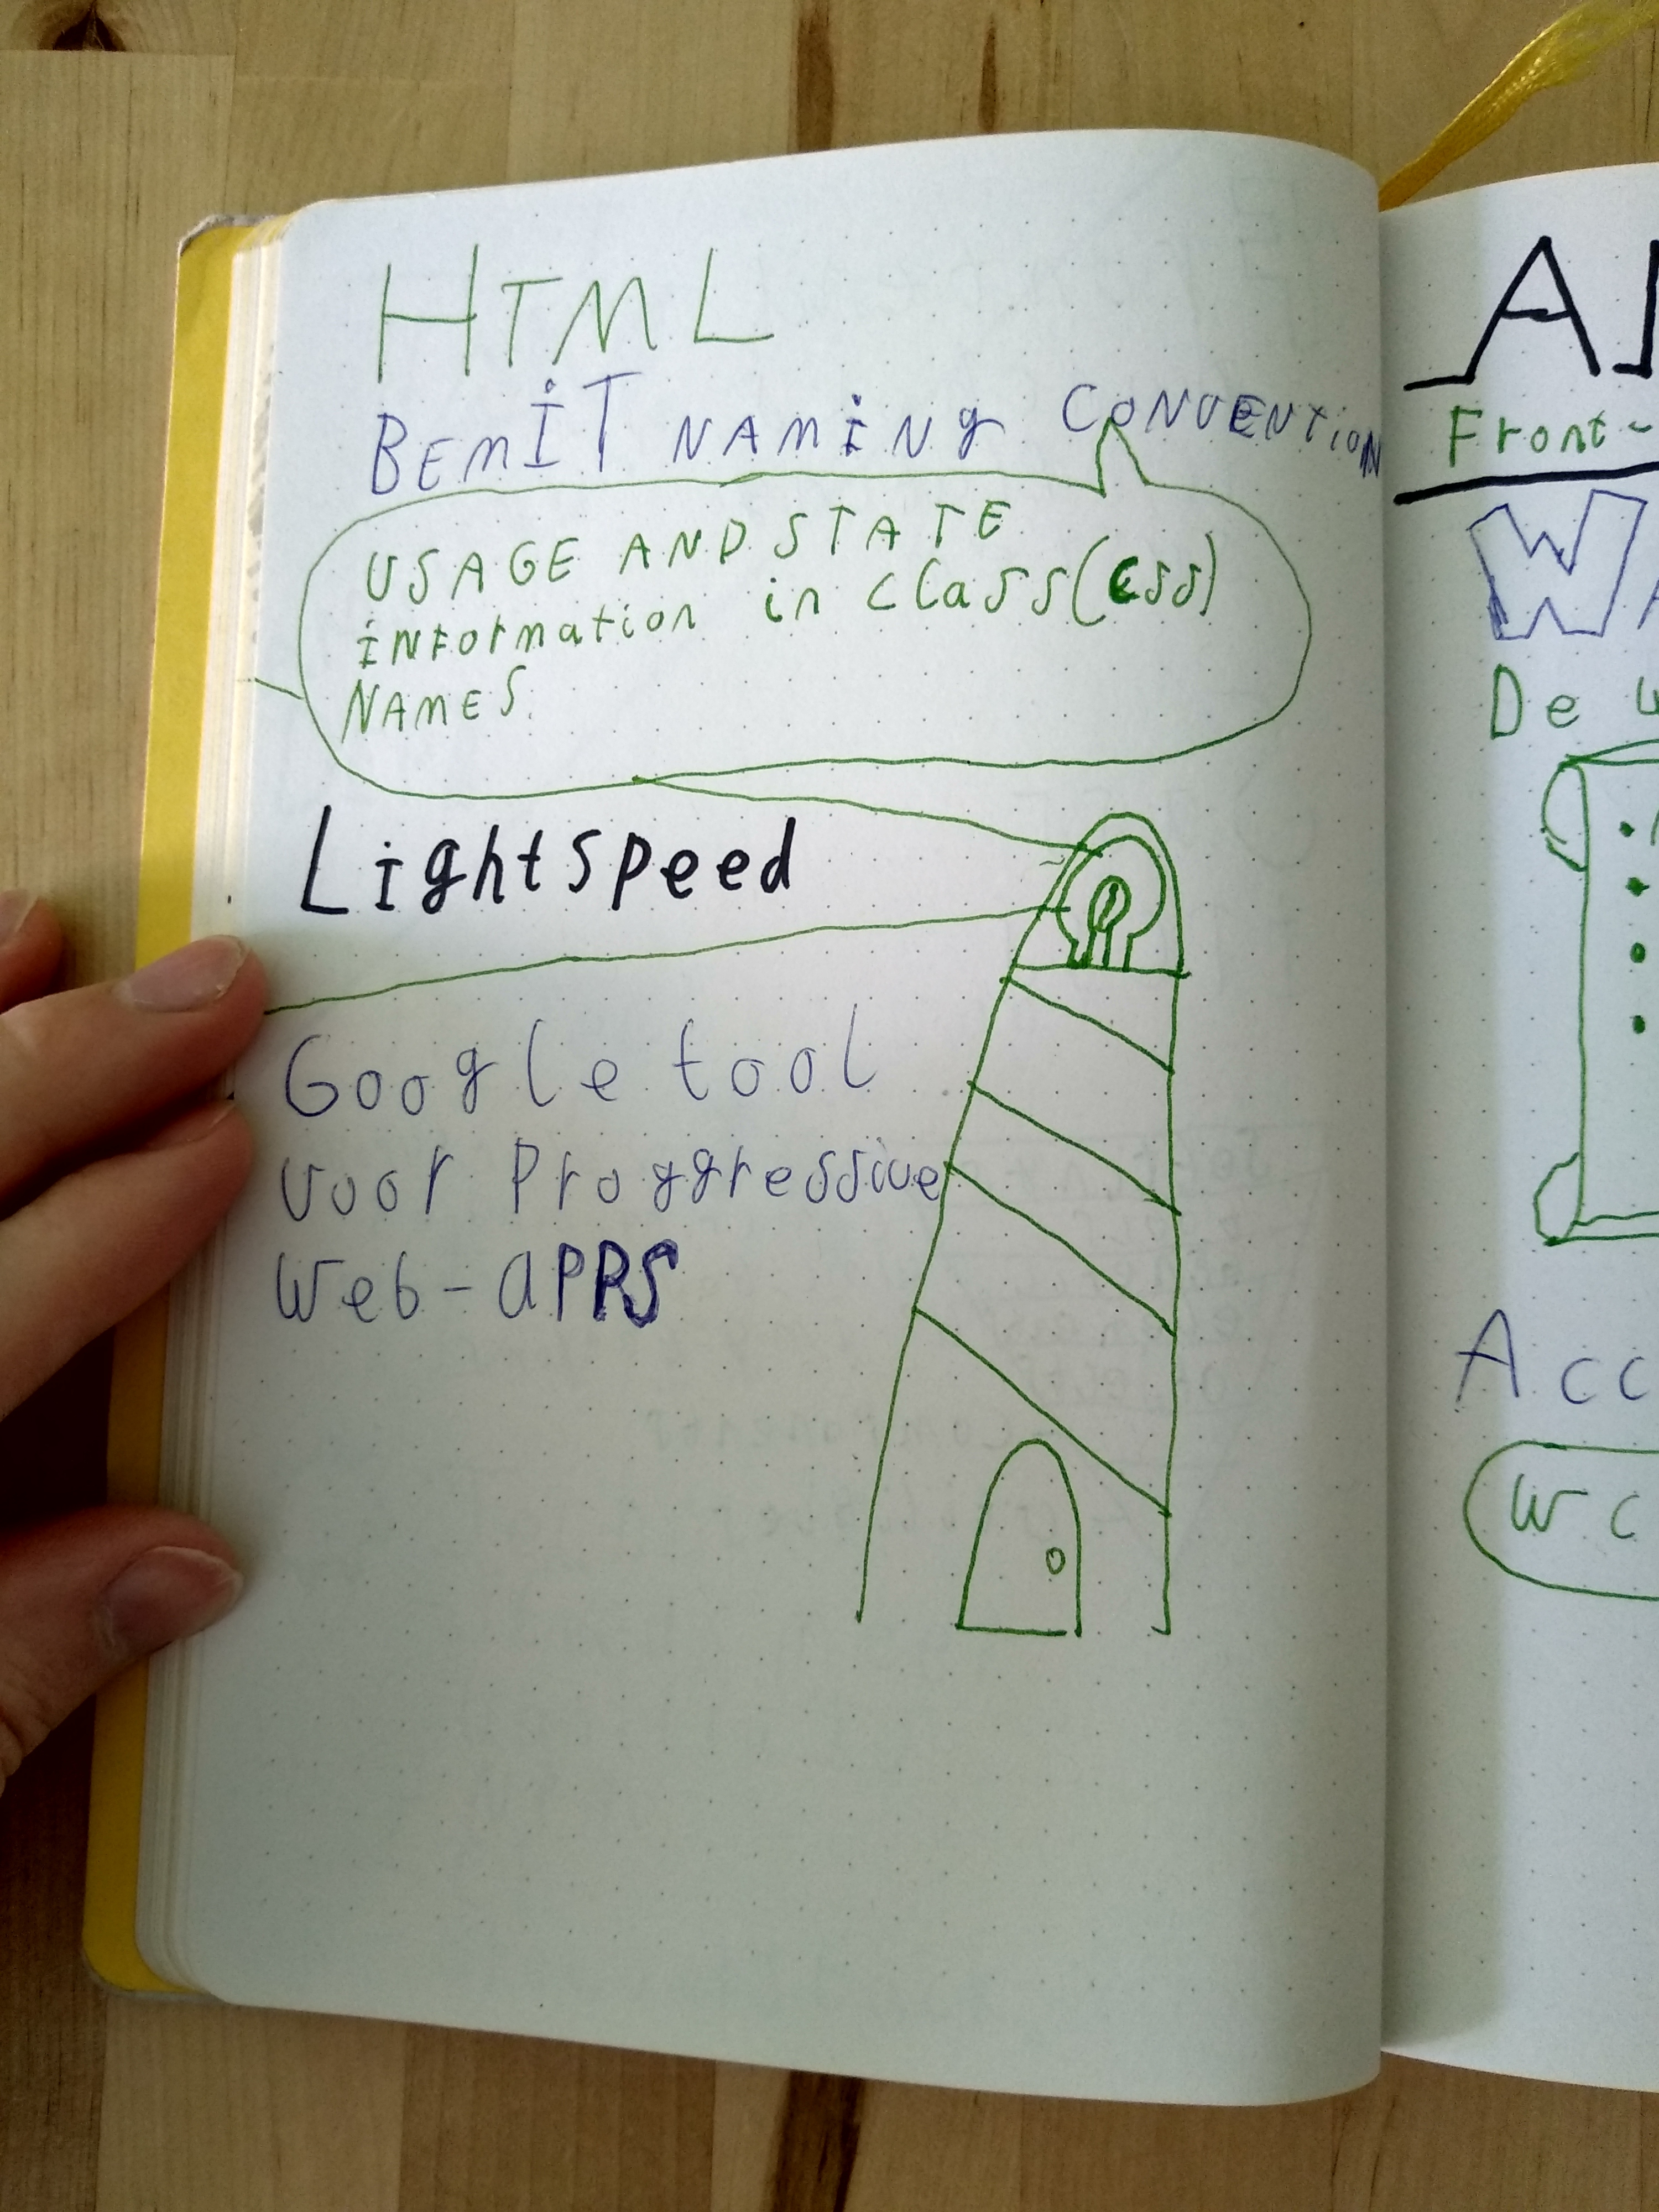 HTML
BEMIT NAMING CONVENTION
USAGE AND STATE
INFormation in class(css)
NAMES
LightSpeed
Google tool
voor Proggressive
Web-aPPS
Front-
De
Acc